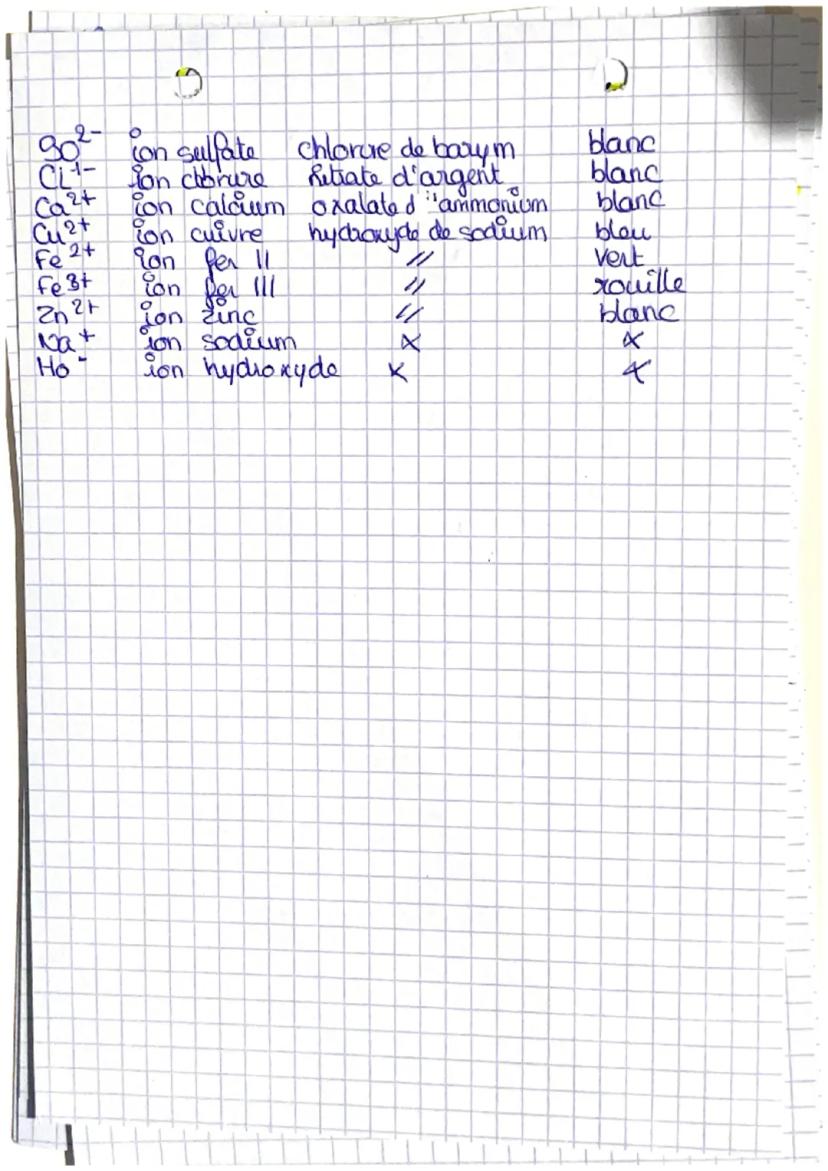 SO²⁻ ion sulfate chlorure de barym blanc
Cl¹⁻ ion clorure nitrate d'argent blanc
Ca²⁺ ion calcium oxalate d'ammonium blanc
Cu²⁺ ion cuivre hydroxyde de sodium bleu
Fe²⁺ ion fer II // vert
Fe³⁺ ion fer III // rouille
Zn²⁺ ion zinc // blanc
Na⁺ ion sodium x x
Ho⁻ ion hydroxyde x x